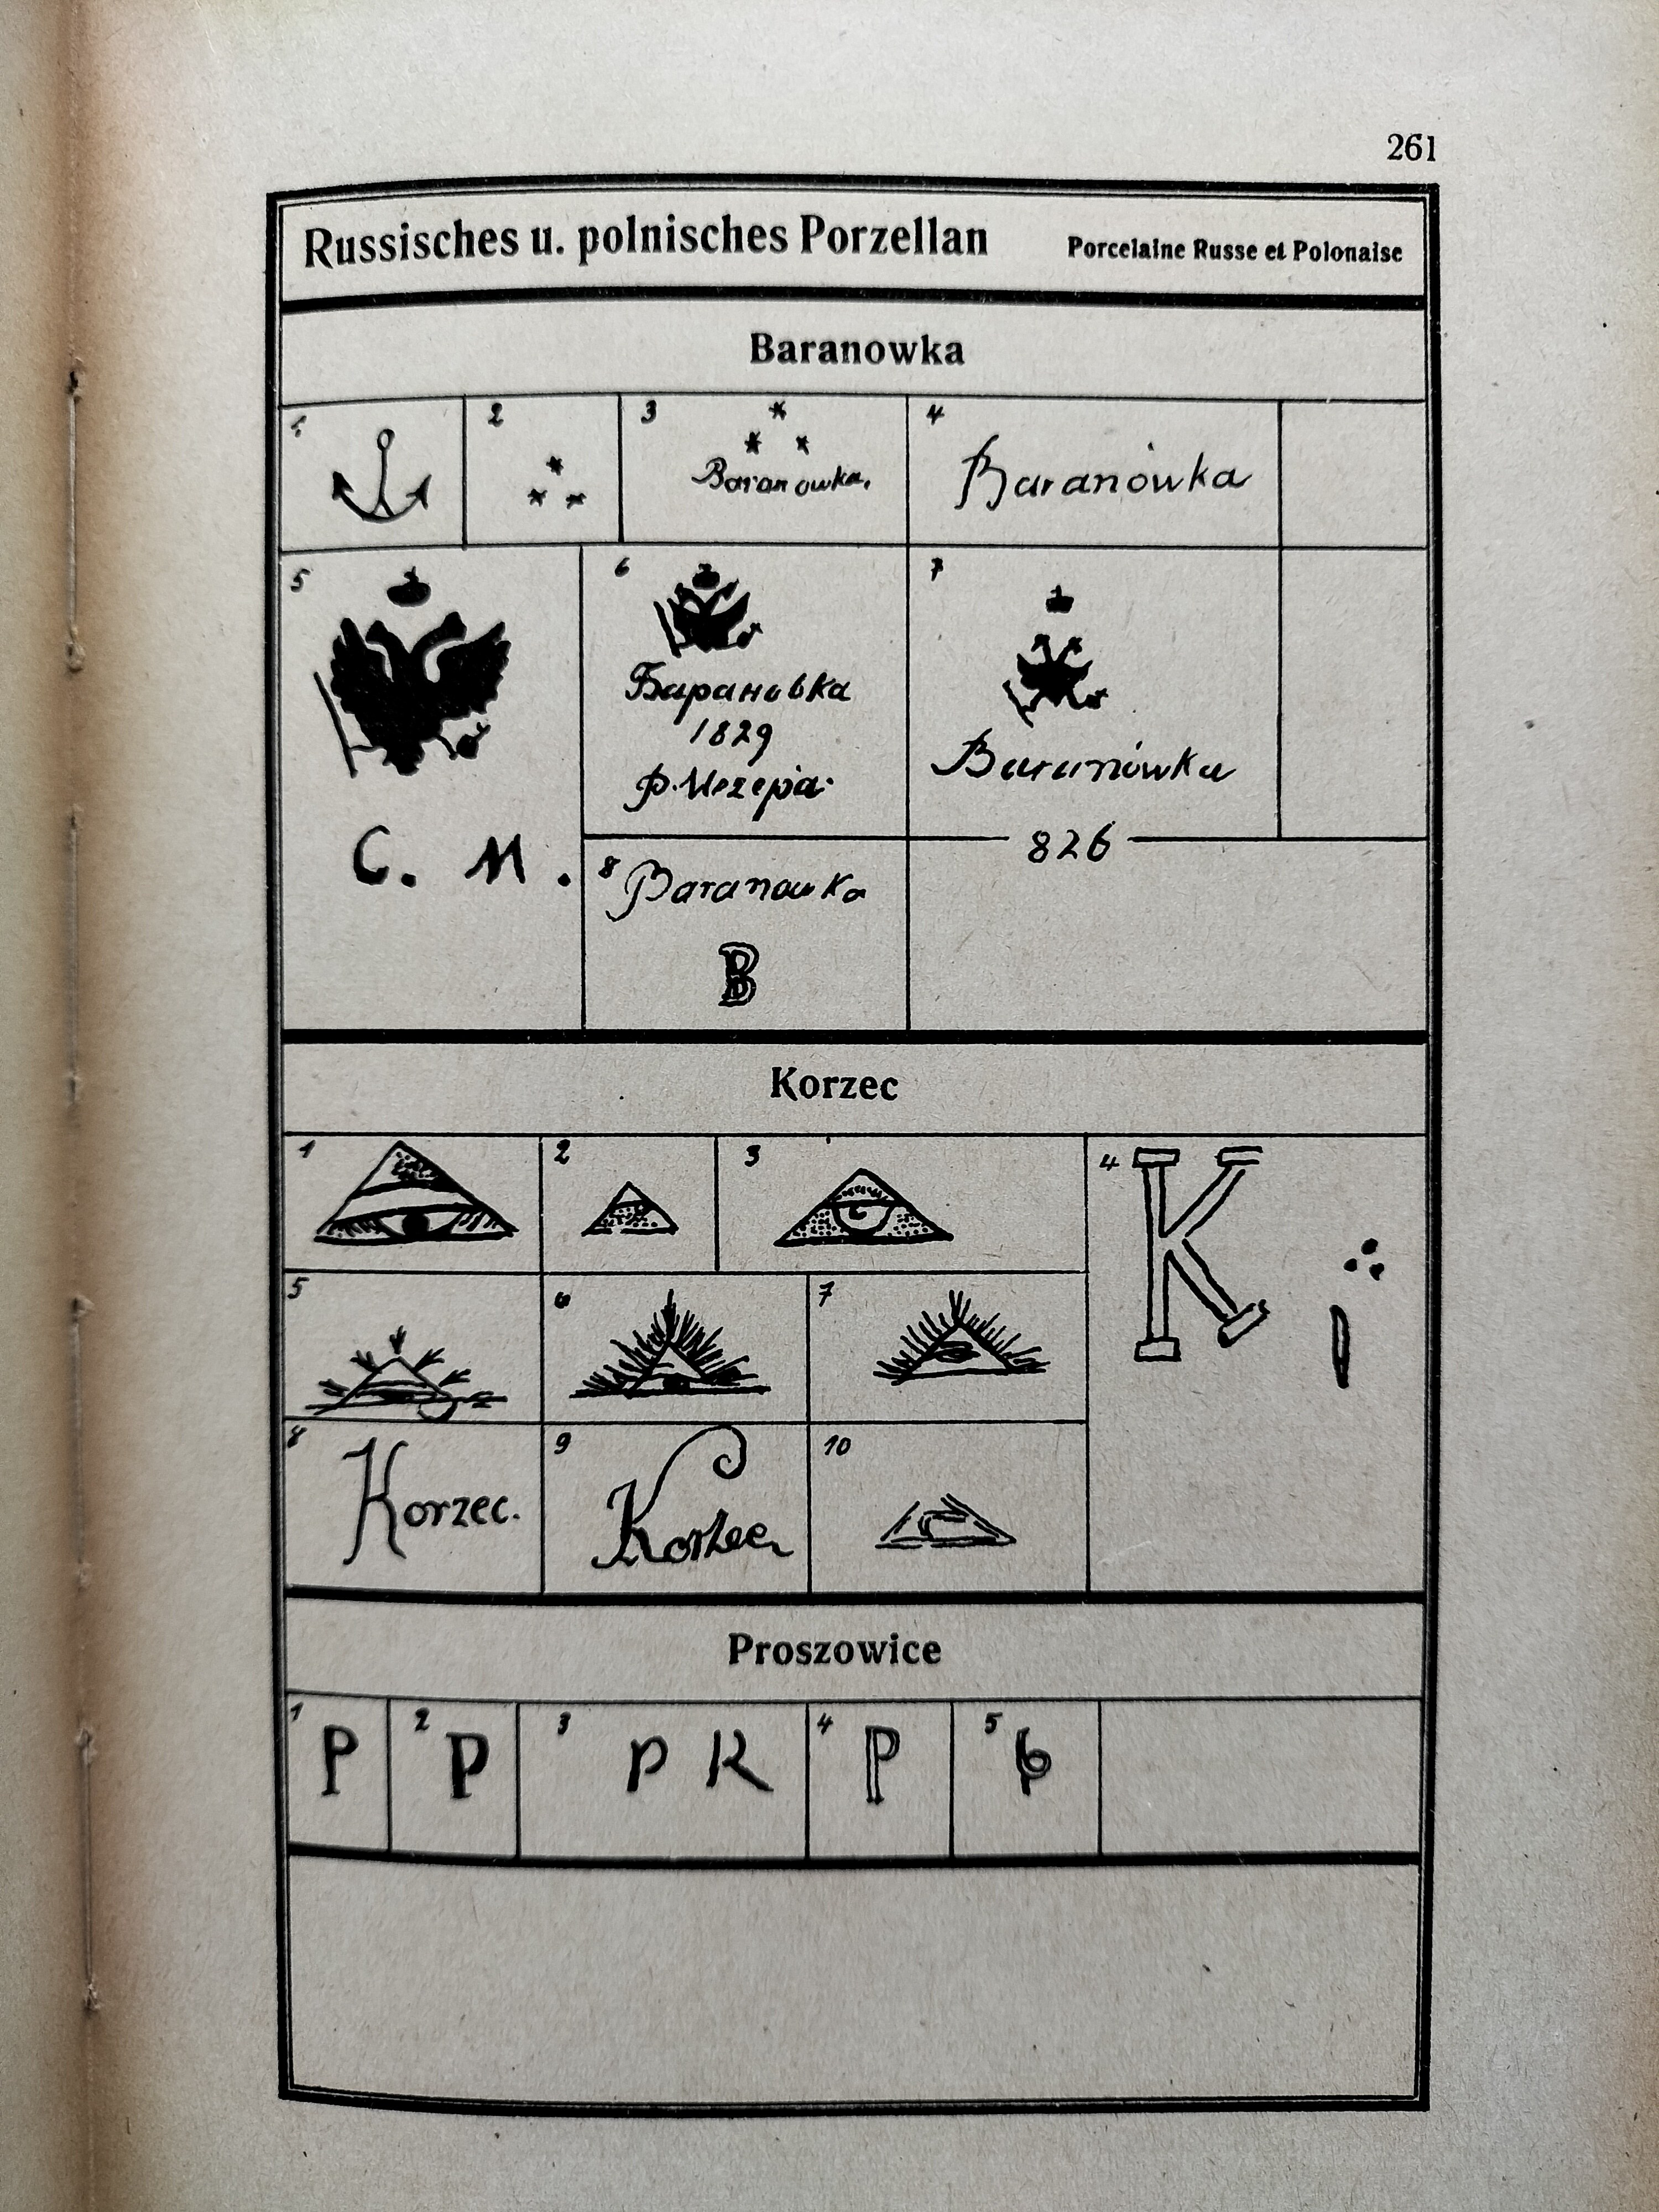 261
Russisches u. polnisches Porzellan
Porcelaine Russe et Polonaise
Baranowka
1
2
3
Baranowka,
4
Baranówka
5
C. M.
6
Барановка
1829
7
Baranówka
826
8
Baranowka
B
Korzec
1
2
3
4
K
5
6
7
8
Korzec.
9
Korzec
10
Proszowice
1
P
2
P
3
P K
4
P
5